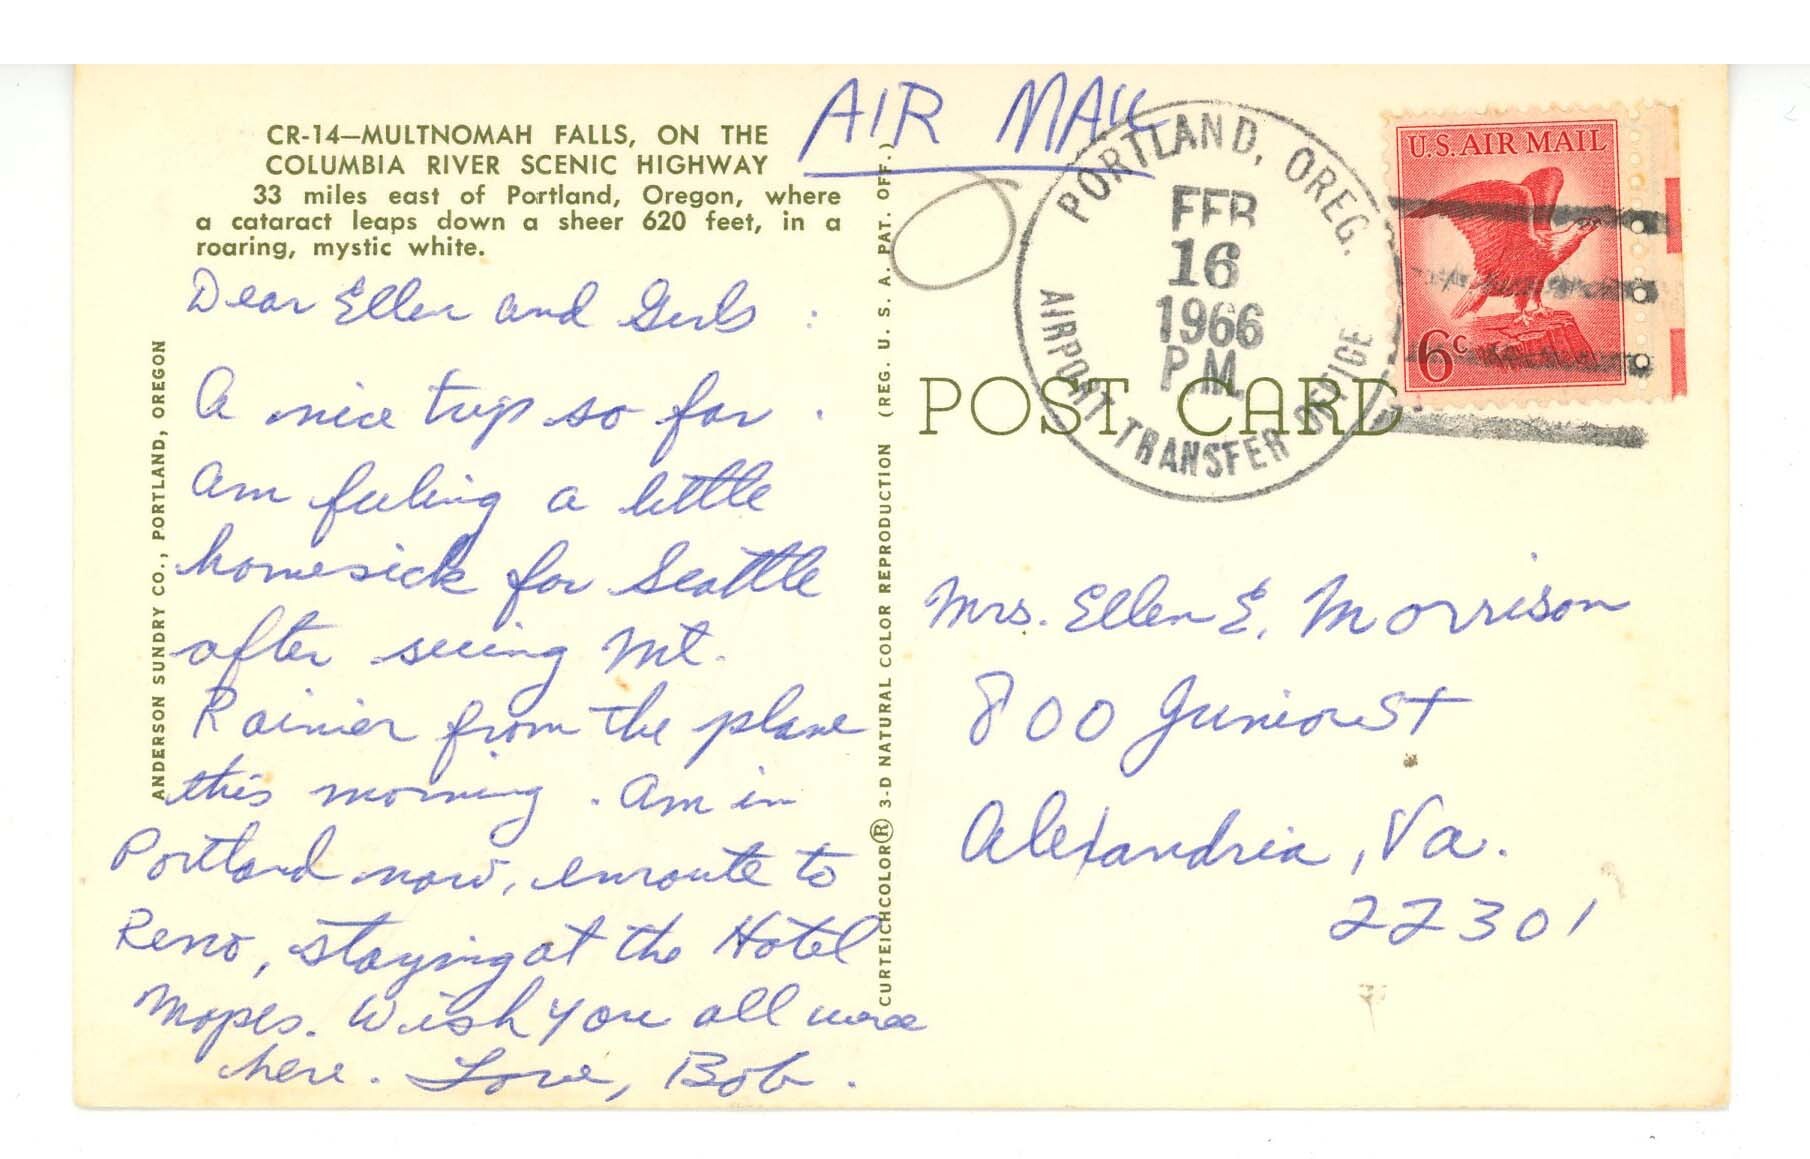 CR-14—MULTNOMAH FALLS, ON THE
COLUMBIA RIVER SCENIC HIGHWAY
33 miles east of Portland, Oregon, where
a cataract leaps down a sheer 620 feet, in a
roaring, mystic white.
Dear Ellen and Girls :
A nice trip so far .
Am feeling a little
homesick for Seattle
after seeing Mt.
Rainier from the plane
this morning . Am in
Portland now, enroute to
Reno, staying at the Hotel
Mapes. Wish you all were
here. Love, Bob.
ANDERSON SUNDRY CO., PORTLAND, OREGON
CURTEICHCOLOR® 3-D NATURAL COLOR REPRODUCTION (REG. U. S. A. PAT. OFF.)
AIR MAIL
PORTLAND, OREG.
FEB
16
1966
P.M.
AIRPORT TRANSFER OFFICE
U.S. AIR MAIL
6c
POST CARD
Mrs. Ellen E. Morrison
800 Junior St
Alexandria, Va.
22301